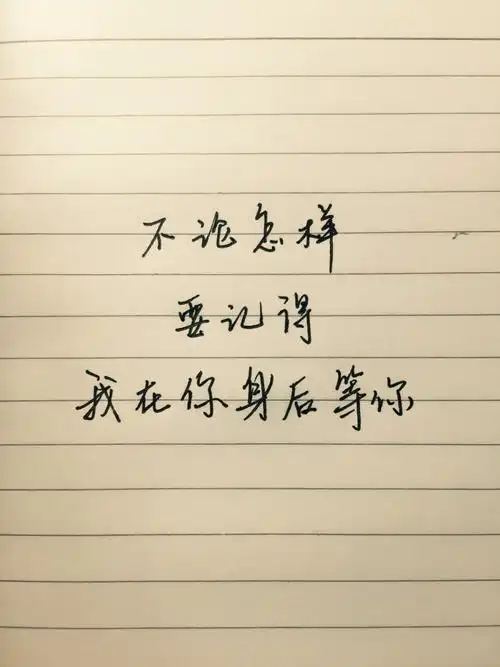 不论怎样
要记得
我在你身后等你